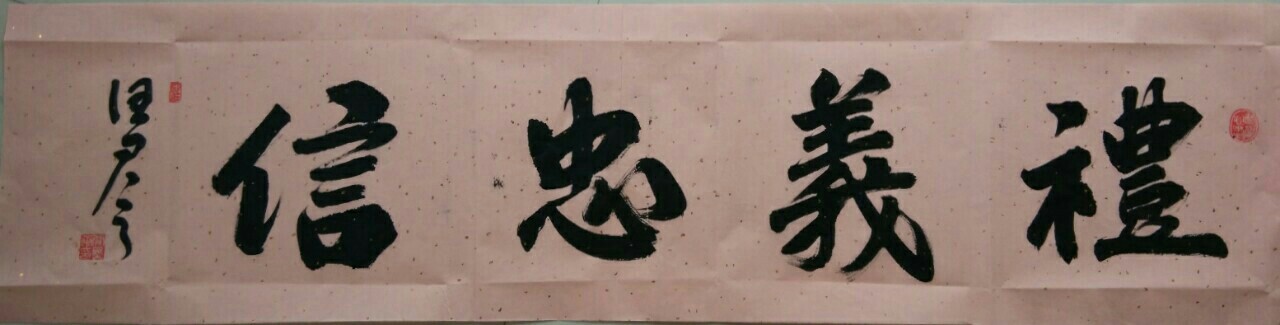 禮義忠信